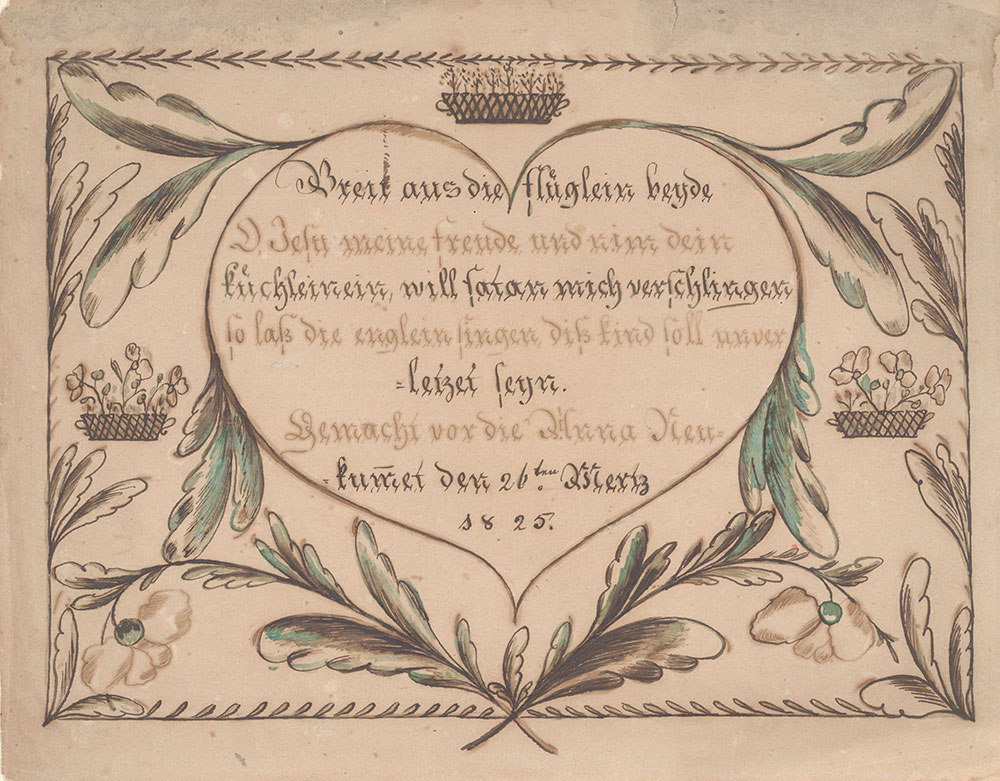 Breit aus die flüglein beyde
O, Jesu meine freude, und nim dein
küchlein ein, will satan mich verschlingen
so laß die englein singen, diß kind soll unver
=letzet seyn.
Gemacht vor die Anna Neu=
=kum̅et den 26ten. Mertz
1825.